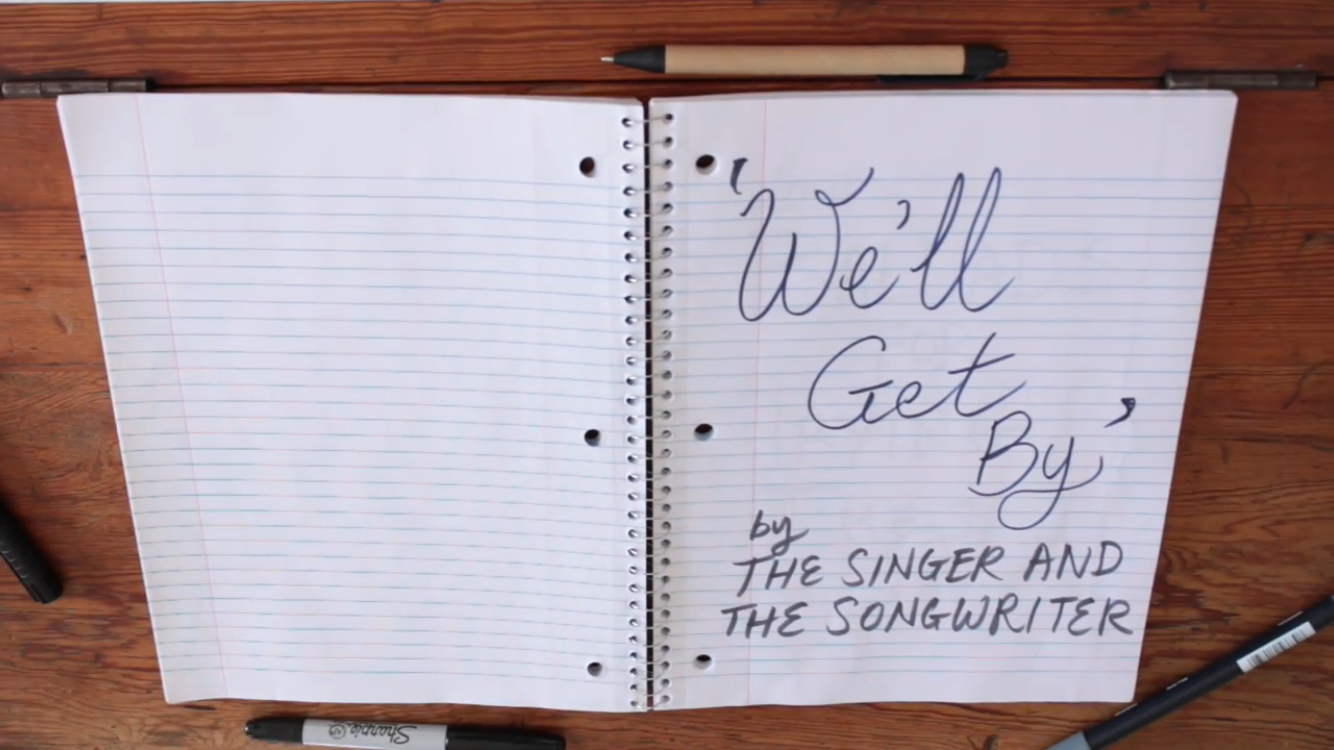 'We'll
Get
By'
by
THE SINGER AND
THE SONGWRITER
Sharpie